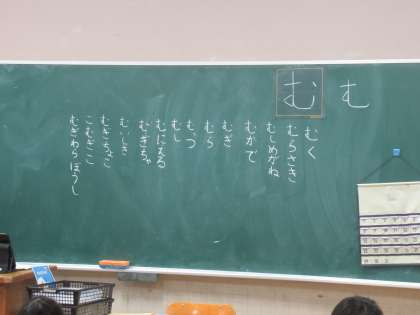 む
む
むく
むらさき
むしめがね
むかで
むぎ
むら
むっつ
むし
むにえる
むぎちゃ
むいしき
むぎちょこ
こむぎこ
むぎわらぼうし